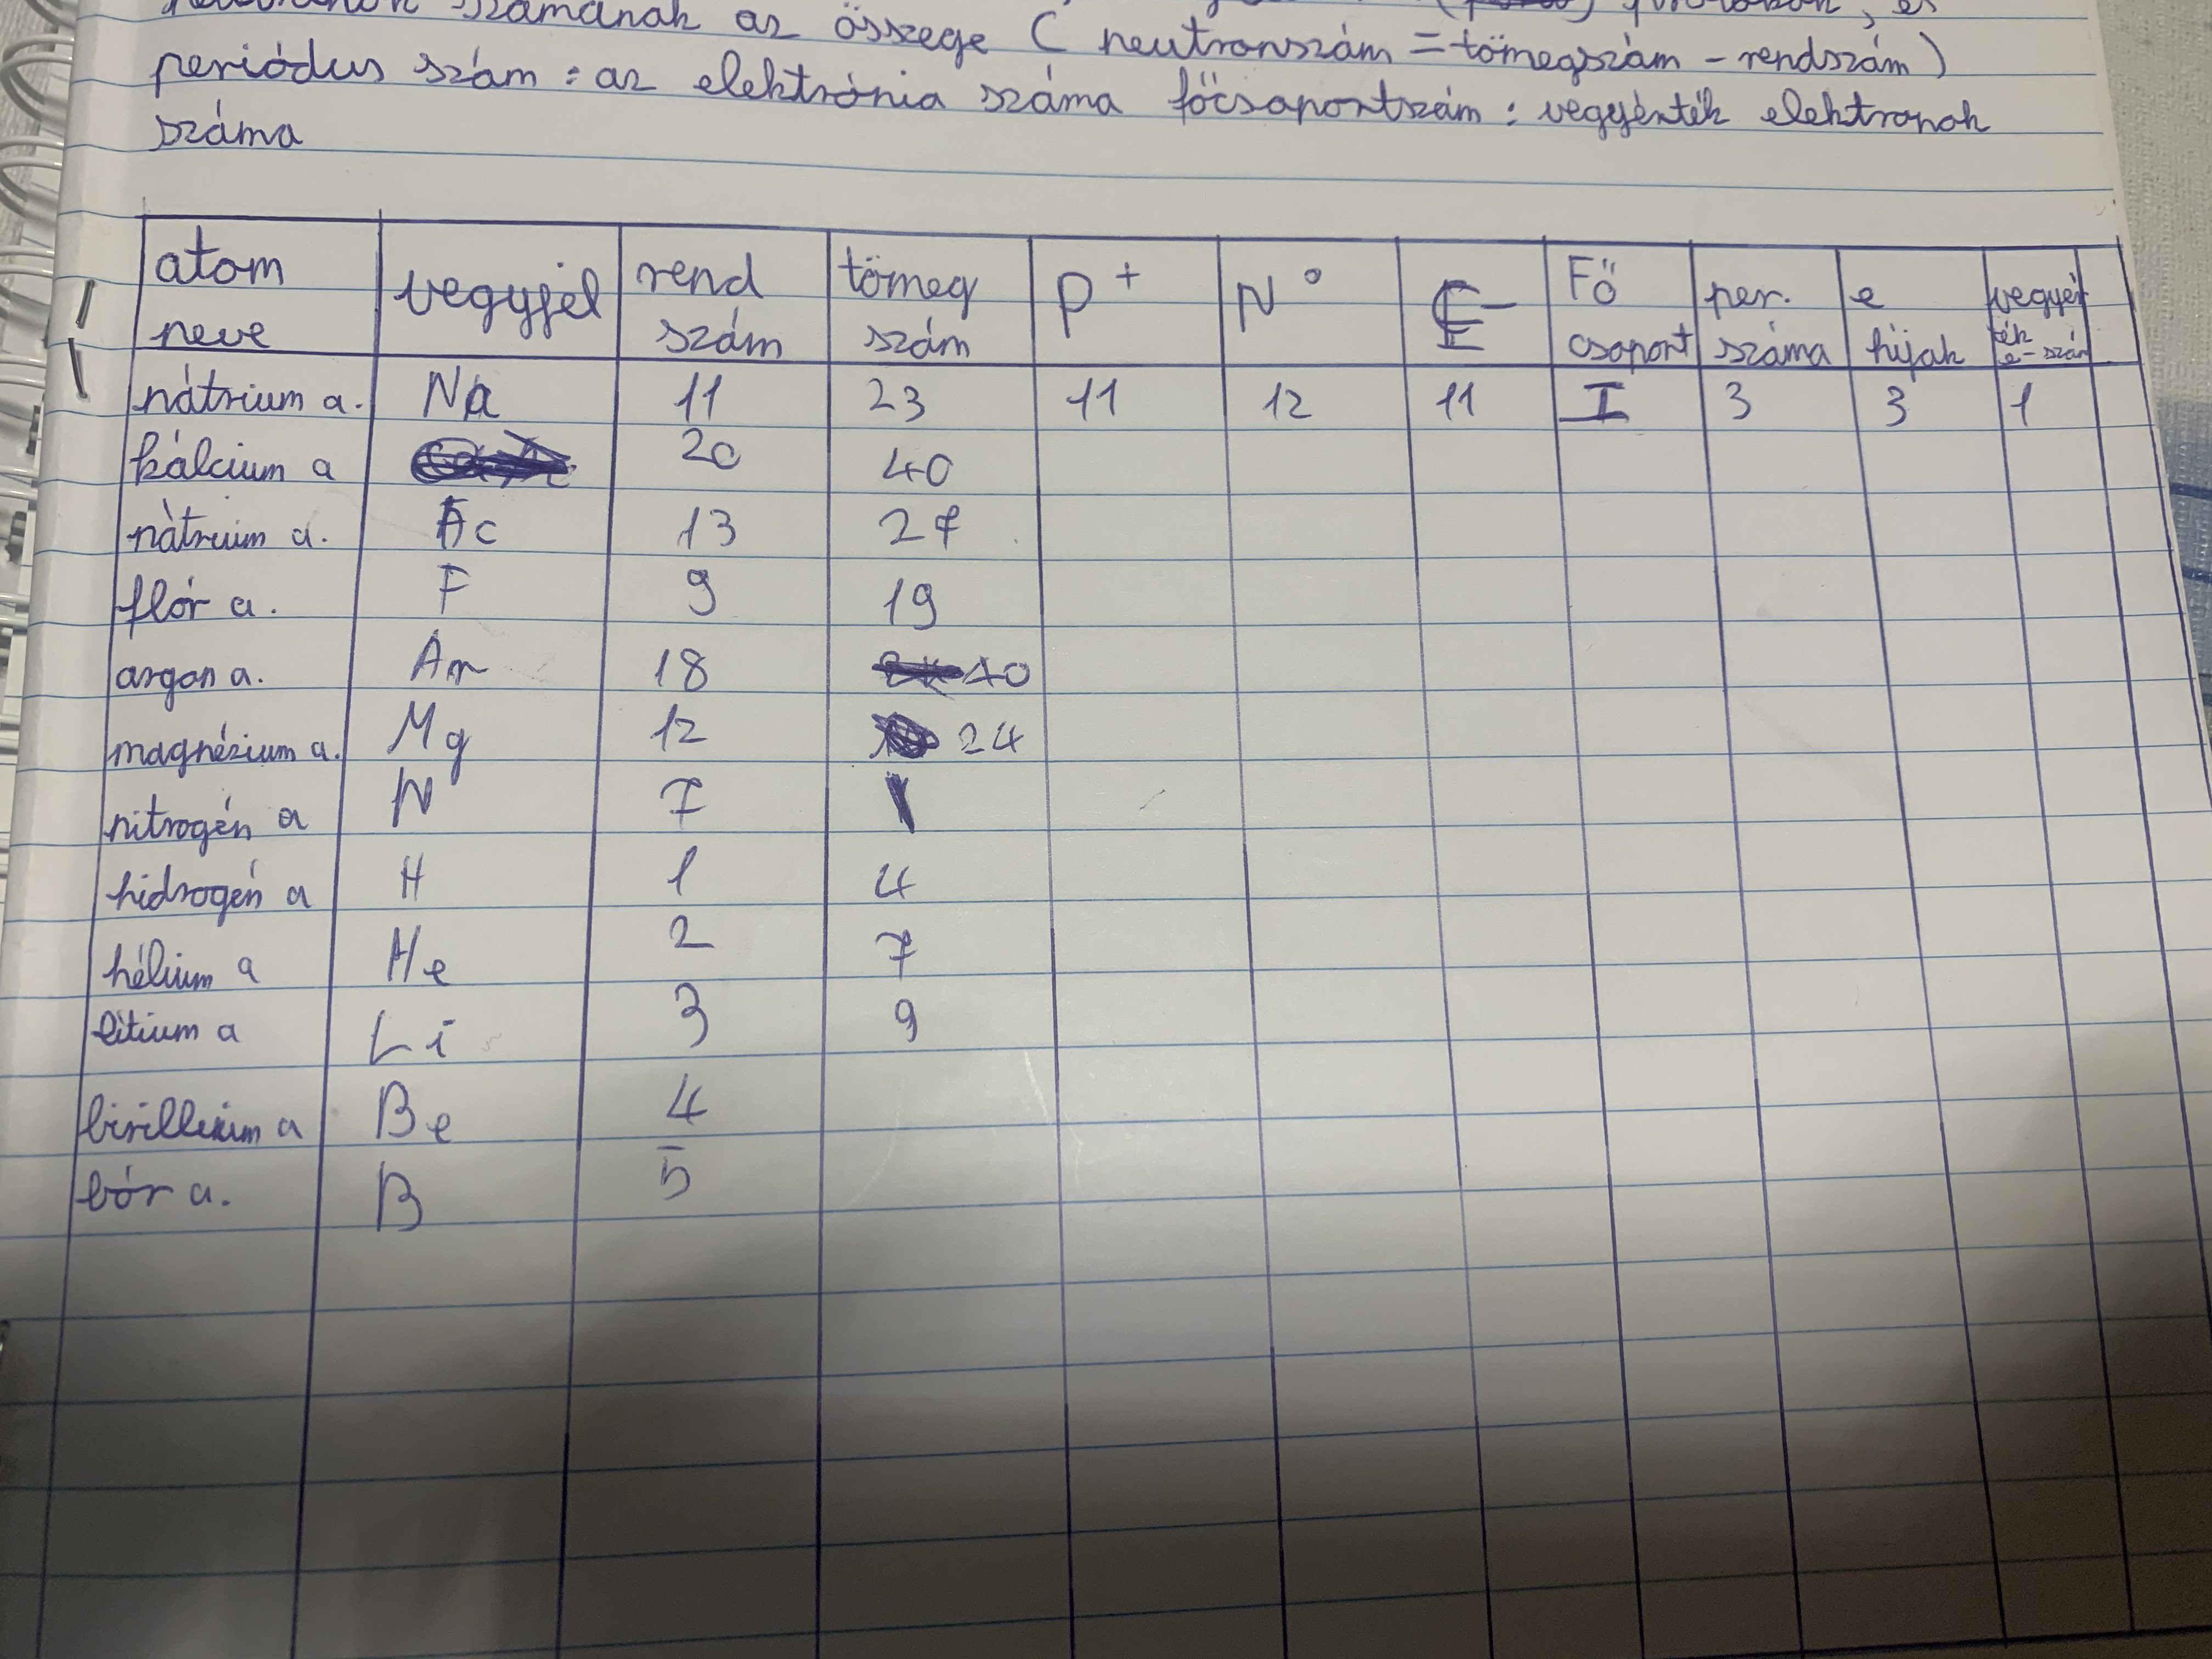 számának az összege ( neutronszám = tömegszám - rendszám )
periódus szám : az elektrónia száma főcsoportszám : vegyérték elektronok
száma
atom neve vegyjel rend szám tömeg szám P+ N° E- Fő csoport per. száma e híjak vegyér ték e- szám
nátrium a. Na 11 23 11 12 11 I 3 3 1
kálcium a 20 40
nátruim a. Ac 13 27
flór a. F 9 19
argon a. Ar 18 40
magnézium a. Mg 12 24
nitrogén a N 7
hidrogén a H 1 4
hélium a He 2 7
litium a Li 3 9
birillium a Be 4
bór a. B 5